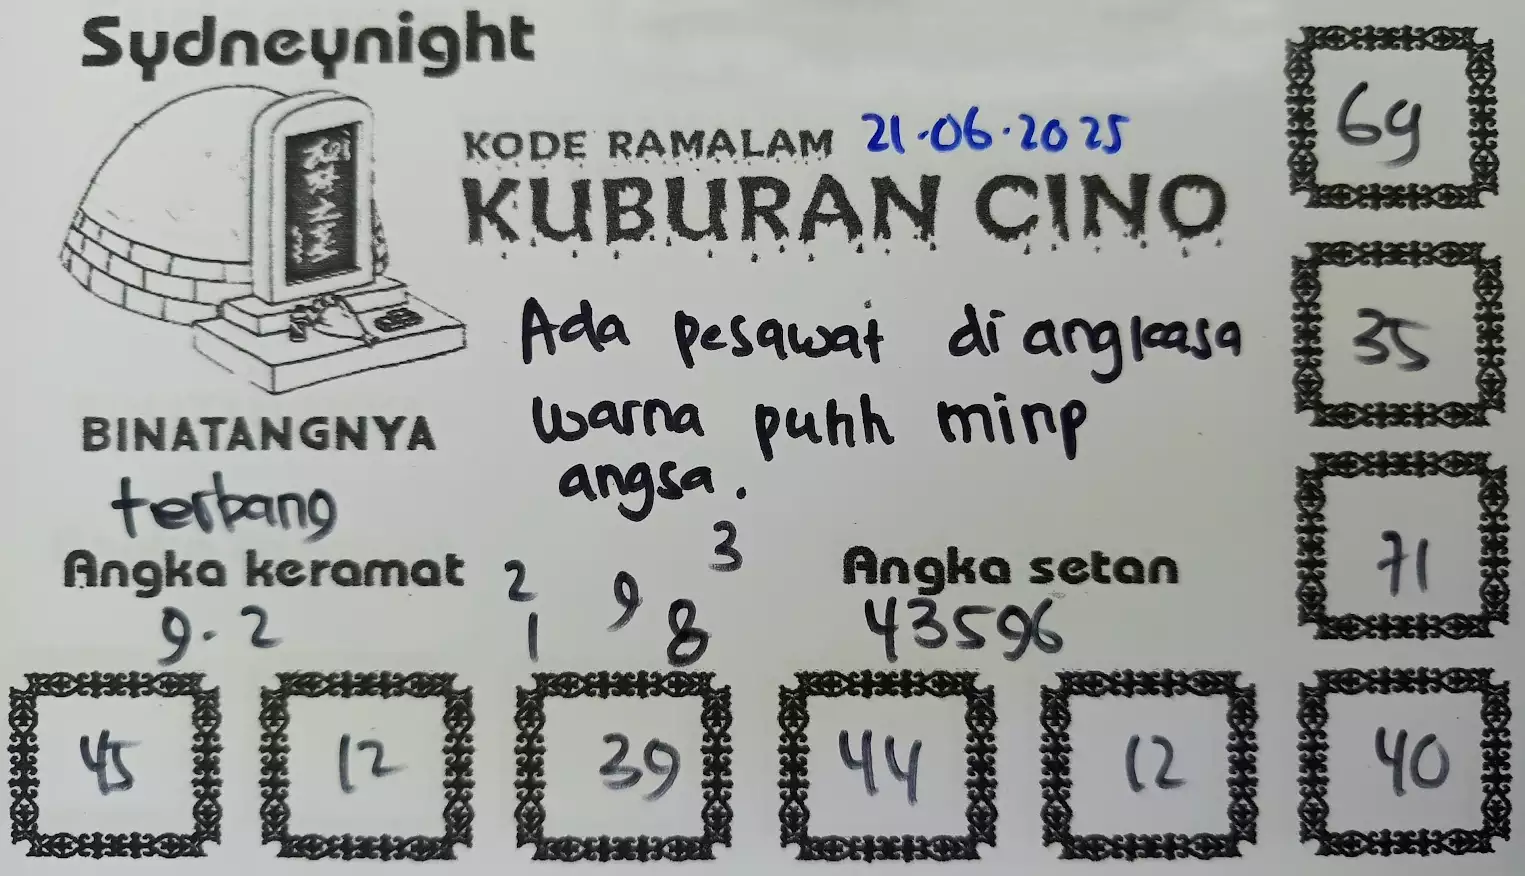 Sydneynight
KODE RAMALAM 21-06-2025
KUBURAN CINO
Ada pesawat di angkasa
warna puhh minp
angsa.
BINATANGNYA
terbang
Angka keramat
9.2
2 9 3
1 8
Angka setan
43596
69
35
71
45 12 39 44 12 40